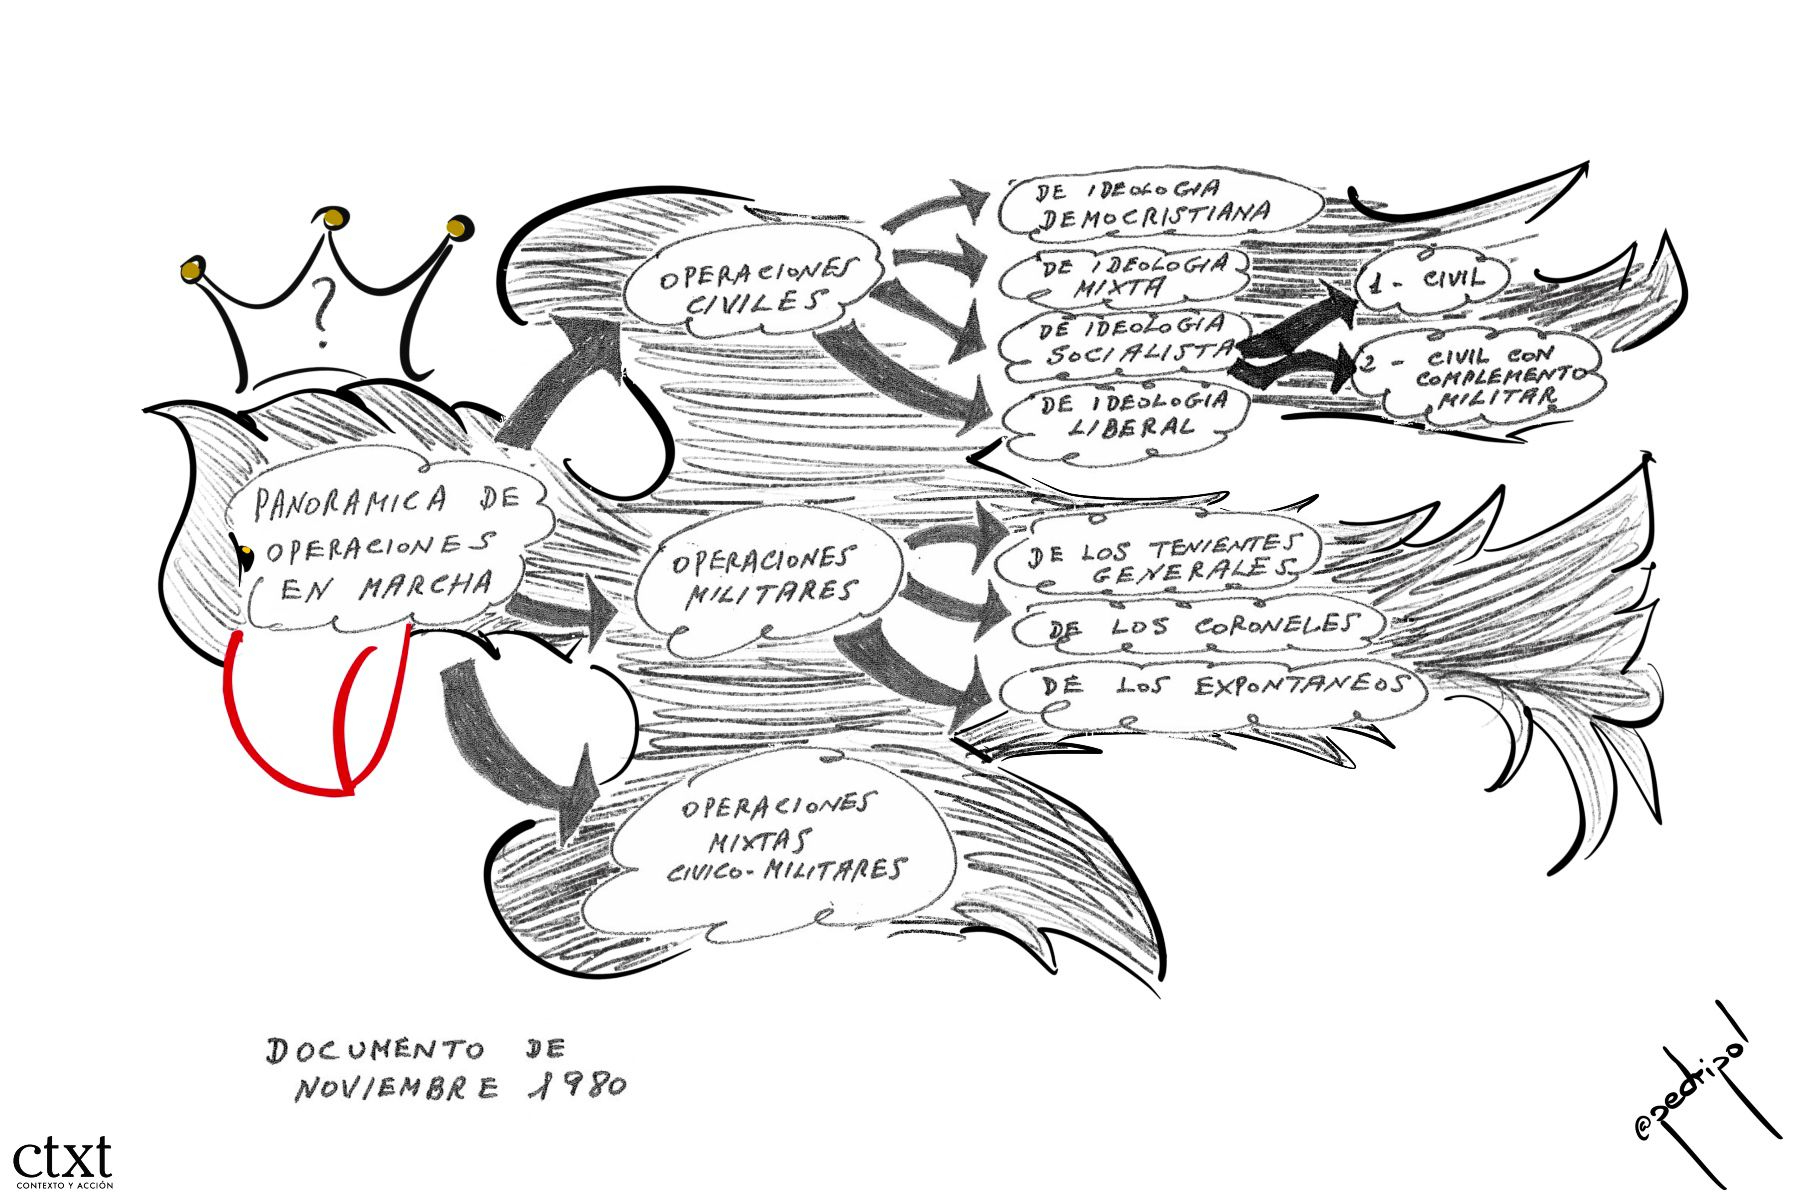 ?
PANORAMICA DE
OPERACIONES
EN MARCHA
OPERACIONES
CIVILES
DE IDEOLOGIA
DEMOCRISTIANA
DE IDEOLOGIA
MIXTA
DE IDEOLOGIA
SOCIALISTA
DE IDEOLOGIA
LIBERAL
1 - CIVIL
2 - CIVIL CON
COMPLEMENTO
MILITAR
OPERACIONES
MILITARES
DE LOS TENIENTES
GENERALES
DE LOS CORONELES
DE LOS EXPONTANEOS
OPERACIONES
MIXTAS
CIVICO-MILITARES
DOCUMENTO DE
NOVIEMBRE 1980
ctxt
CONTEXTO Y ACCIÓN
@pedripol